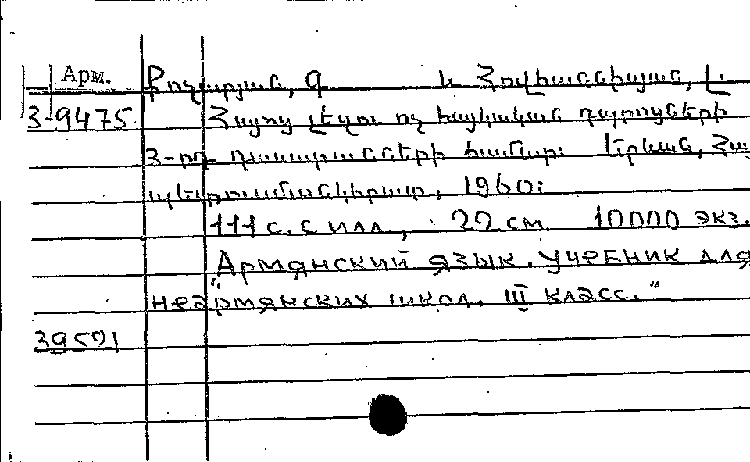 Арм. Քոչարյան, Գ և Հովհաննիսյան, Լ.
3-9475 Հայոց լեզու ոչ հայկական դպրոցների
3-րդ դասարանների համար: Երևան, Հա
պետուսմանկհրատ, 1960:
111 с. с илл., 22 см 10000 экз.
"Армянский язык. Учебник для
неармянских школ. III класс."